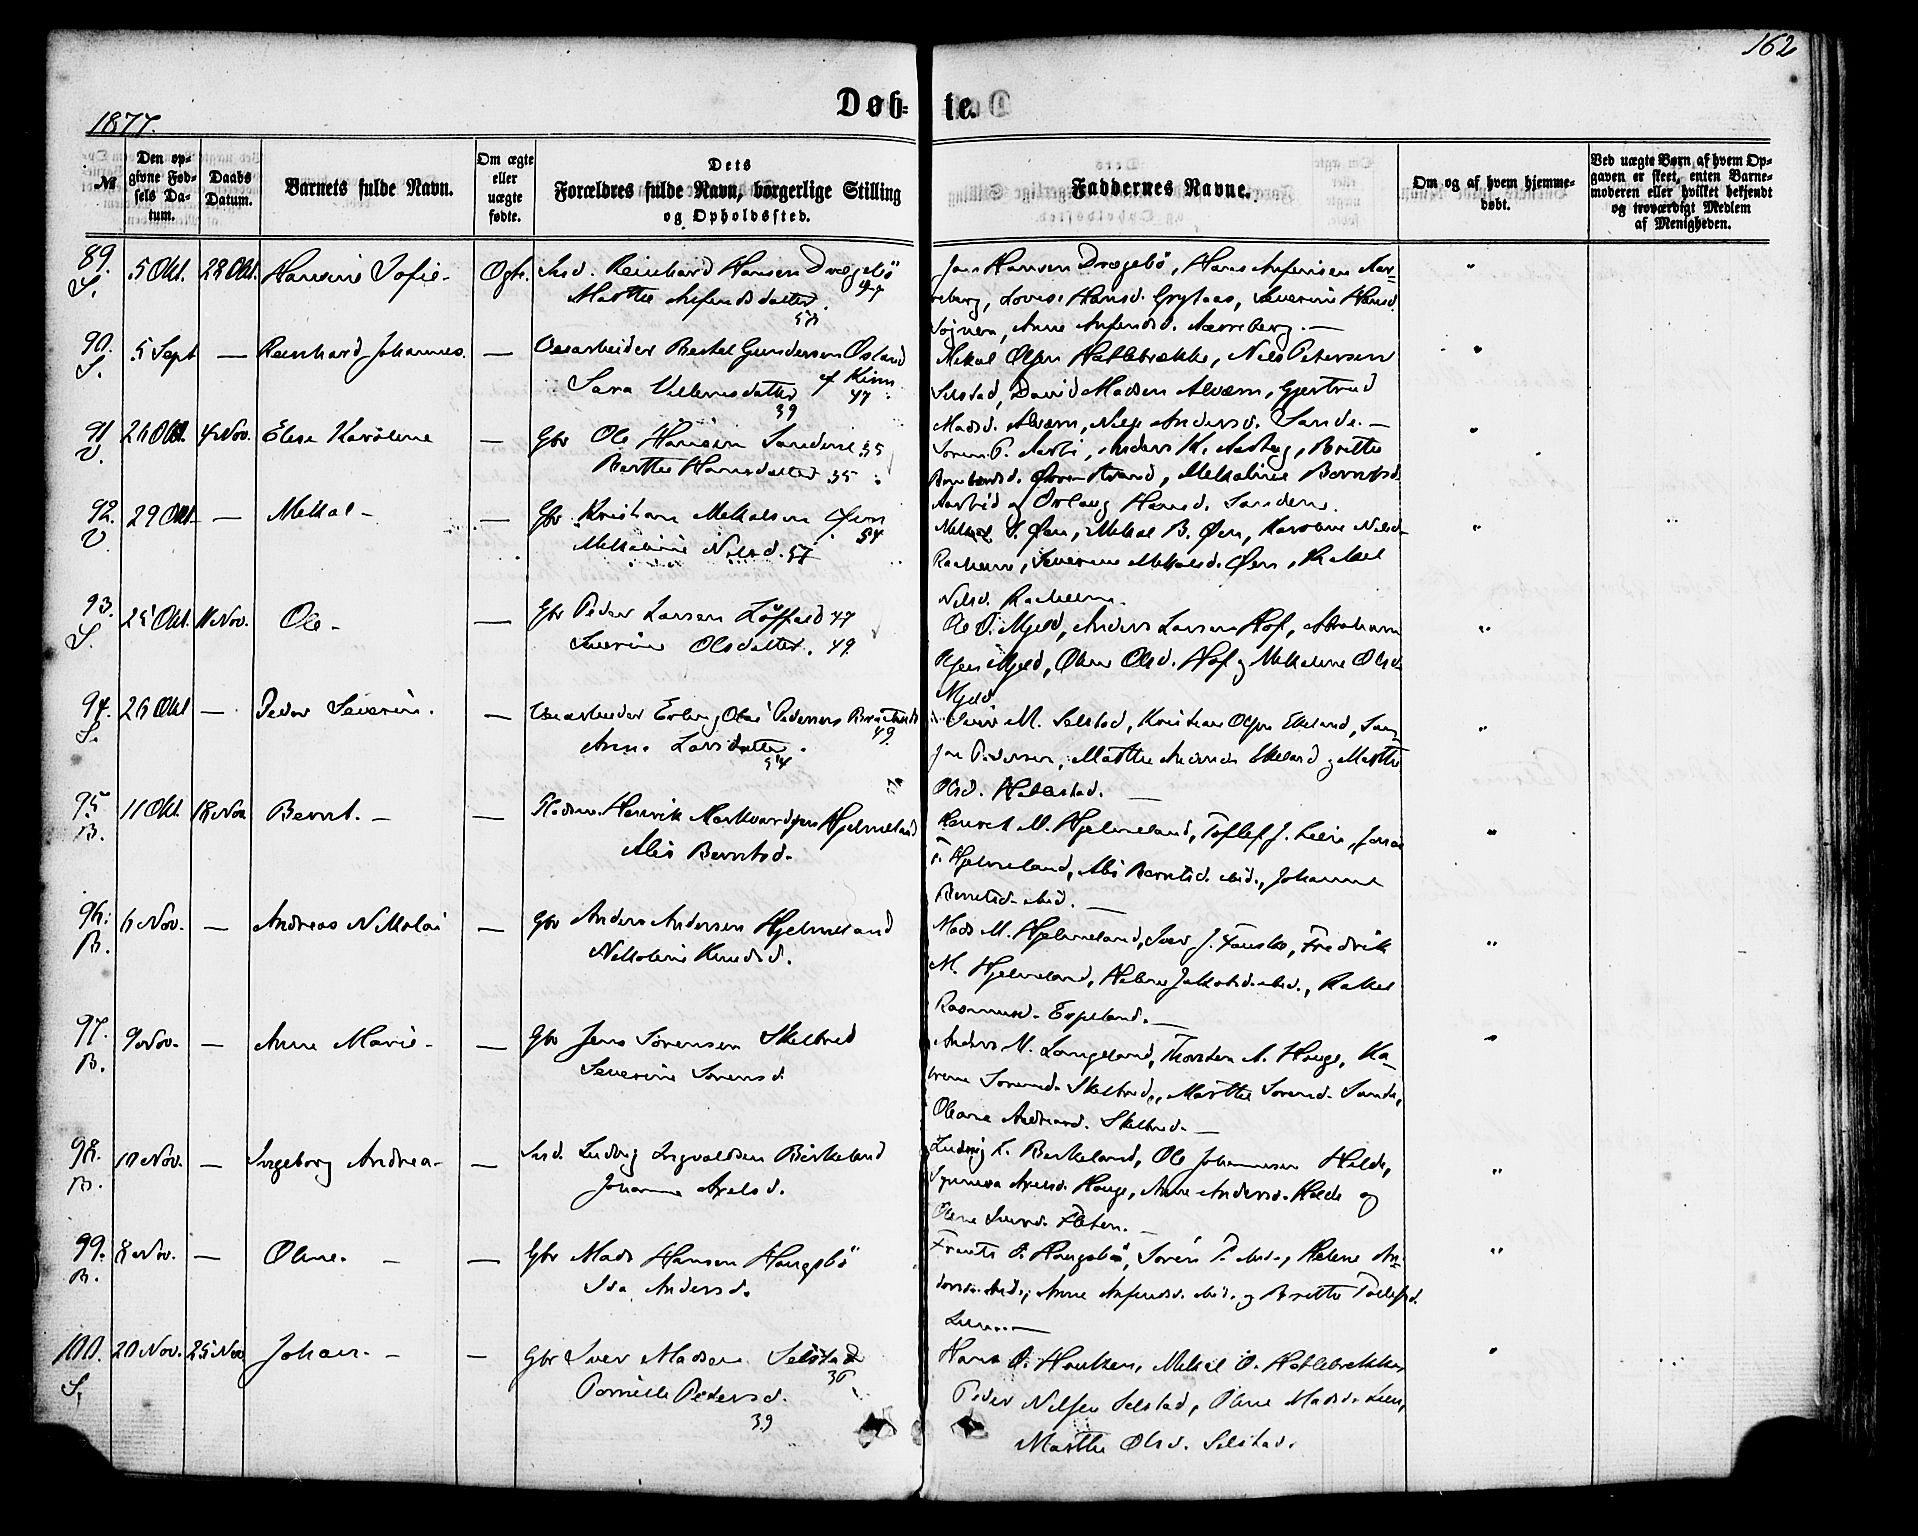 162
1877.
Døb- te.
№
Den opgivne Fødsels Datum.
Daabs Datum.
Barnets fulde Navn.
Om ægte eller uægte fødte.
Dets Forældres fulde Navn, borgerlige Stilling og Opholdssted.
Faddernes Navne.
Om og af hvem hjemmedøbt.
Ved uægte Børn af hvem Opgaven er skeet, enten Barnemoderen eller hvilket bekjendt og troværdigt Medlem af Menigheden.
89. S. 5 Okt. 28 Okt. Hansine Sofie - Ægte. Reinhard Hansen Drægebö 47
Marthe Anfindsdatter 57
Jens Hansen Drægebö, Hans Anfinsen Aar-
reberg, Lovise Hansd. Grytaas, Severine Hansd.
Anne Anfindsd. Aarreberg. —
90. S. 5 Sept — Reinhard Johannes. — Veiarbeider Bertel Gundersen Osland
af Kinn 47
Sara Villumsdatter 39
Mikal Olsen Hatlebrekke, Nils Petersen
Selstad, David Madsen Alværn, Gjertrud
Madsd. Alværn, Andersd. Sande. —
91 V. 26 Okt. 4 Nov. Elise Karoline — Gbr Ole Hansen Sandene 35
Berthe Hansdatter 35
Anders K. Aasby, Britte
Strand, Mekaline Berntsd.
og Hansd. Sandene.
92. V. 29 Okt. — Mekal - — Gbr Kristian Mekalsen Øren 54
Mekaline Nilsd. 57
Mekal S. Øen, Mekal B. Øen, Karoline Nilsd.
Severine Mekalsd. Øen, Rakel
Nilsd.
93. S. 25 Okt. 11 Nov. Ole - — Gbr Peder Larsen 47
Severine Olsdatter. 49
Ole O. Myeld, Anders Larsen Hof, Abraham
Olsen Myeld, Oline Olsd. Hof og Mekaline Olsd.
Myeld.
94. S. 26 Okt — Peder Severin. — Veiarbeider Erling Olai Pedersen 49
Anne Larsdatter. 54
Iver M. Selstad, Kristian Olsen Ekeland,
Pedersen, Marthe Ekeland og Marthe
Olsd. Hatlestad. —
95 B. 11 Okt. 18 Nov Bernt. - — Henrik Markvardsen Hjelmeland
Alis Berntsd.
Henrik M. Hjelmeland, Tollef J. Leire,
Hjelmeland, Alis Berntsd. ibid., Johanne
Berntsd. ibid. —
96. B. 6 Nov. — Andreas Nikolai — Gbr Anders Andersen Hjelmeland
Nikoline Knudsd.
Mads M. Hjelmeland, Iver J. Fauske, Fredrik
M. Hjelmeland, Helene Jakobsd. ibid., Rakel
Rasmusd. Espeland. —
97. B. 9 Nov. — Anne Marie - — Gbr Jens Sørensen Skelbred
Severine Sørensd.
Anders M. Langeland, Thorsten A. Hauge, Ka-
trene Sørensd. Skelbred, Marthe Sørensd. Sande,
Oleane Andreasd. Skelbred. —
98. B. 10 Nov. — Ingeborg Andrea - — Ludvig Ingvaldsen Birkeland
Johanne Axelsd.
Ludvig L. Birkeland, Ole Johannesen Helde,
Synneva Axelsd. Hauge, Anne Andersd. Helde og
Oline Fleten. —
99. B. 8 Nov. — Oline. - — Gbr Mads Hansen Haugsbö
Ida Andersd.
Frants O. Haugsbö, Søren P. ibid., Helene An-
dersd. ibid., Anne Anfindsd. ibid. og Britte Tollefsd.
100. S. 20 Nov. 25 Nov Johan. - — Gbr Iver Madsen Selstad 36
Pernille Pedersd. 39
Hans O. Mekal O. Hatlebrekke,
Peder Nilsen Selstad, Oline Madsd. Lien,
Marthe Olsd. Selstad.